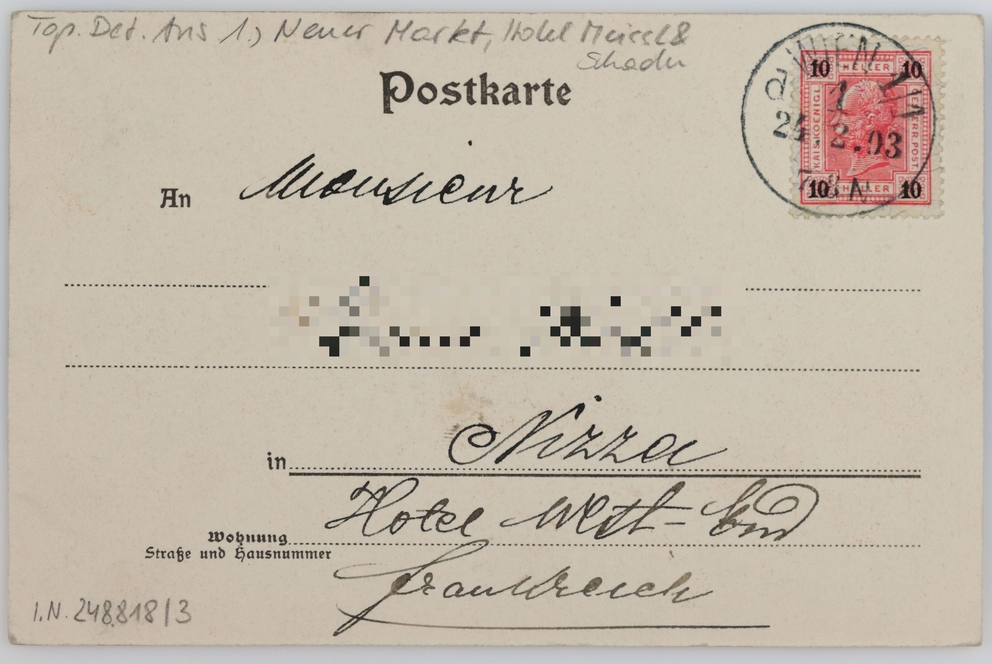 Top. Det. Ans 1., Neuer Markt, Hotel Meissl &
Schadn
Postkarte
WIEN 1/1
1
24.2.03
7-8 N
10 HELLER 10
KAIS. KOENIGL. OESTERR. POST.
10 HELLER 10
An Monsieur
in Nizza
Hotel West-End
Wohnung
Straße und Hausnummer
Frankreich
I.N. 248.818/3